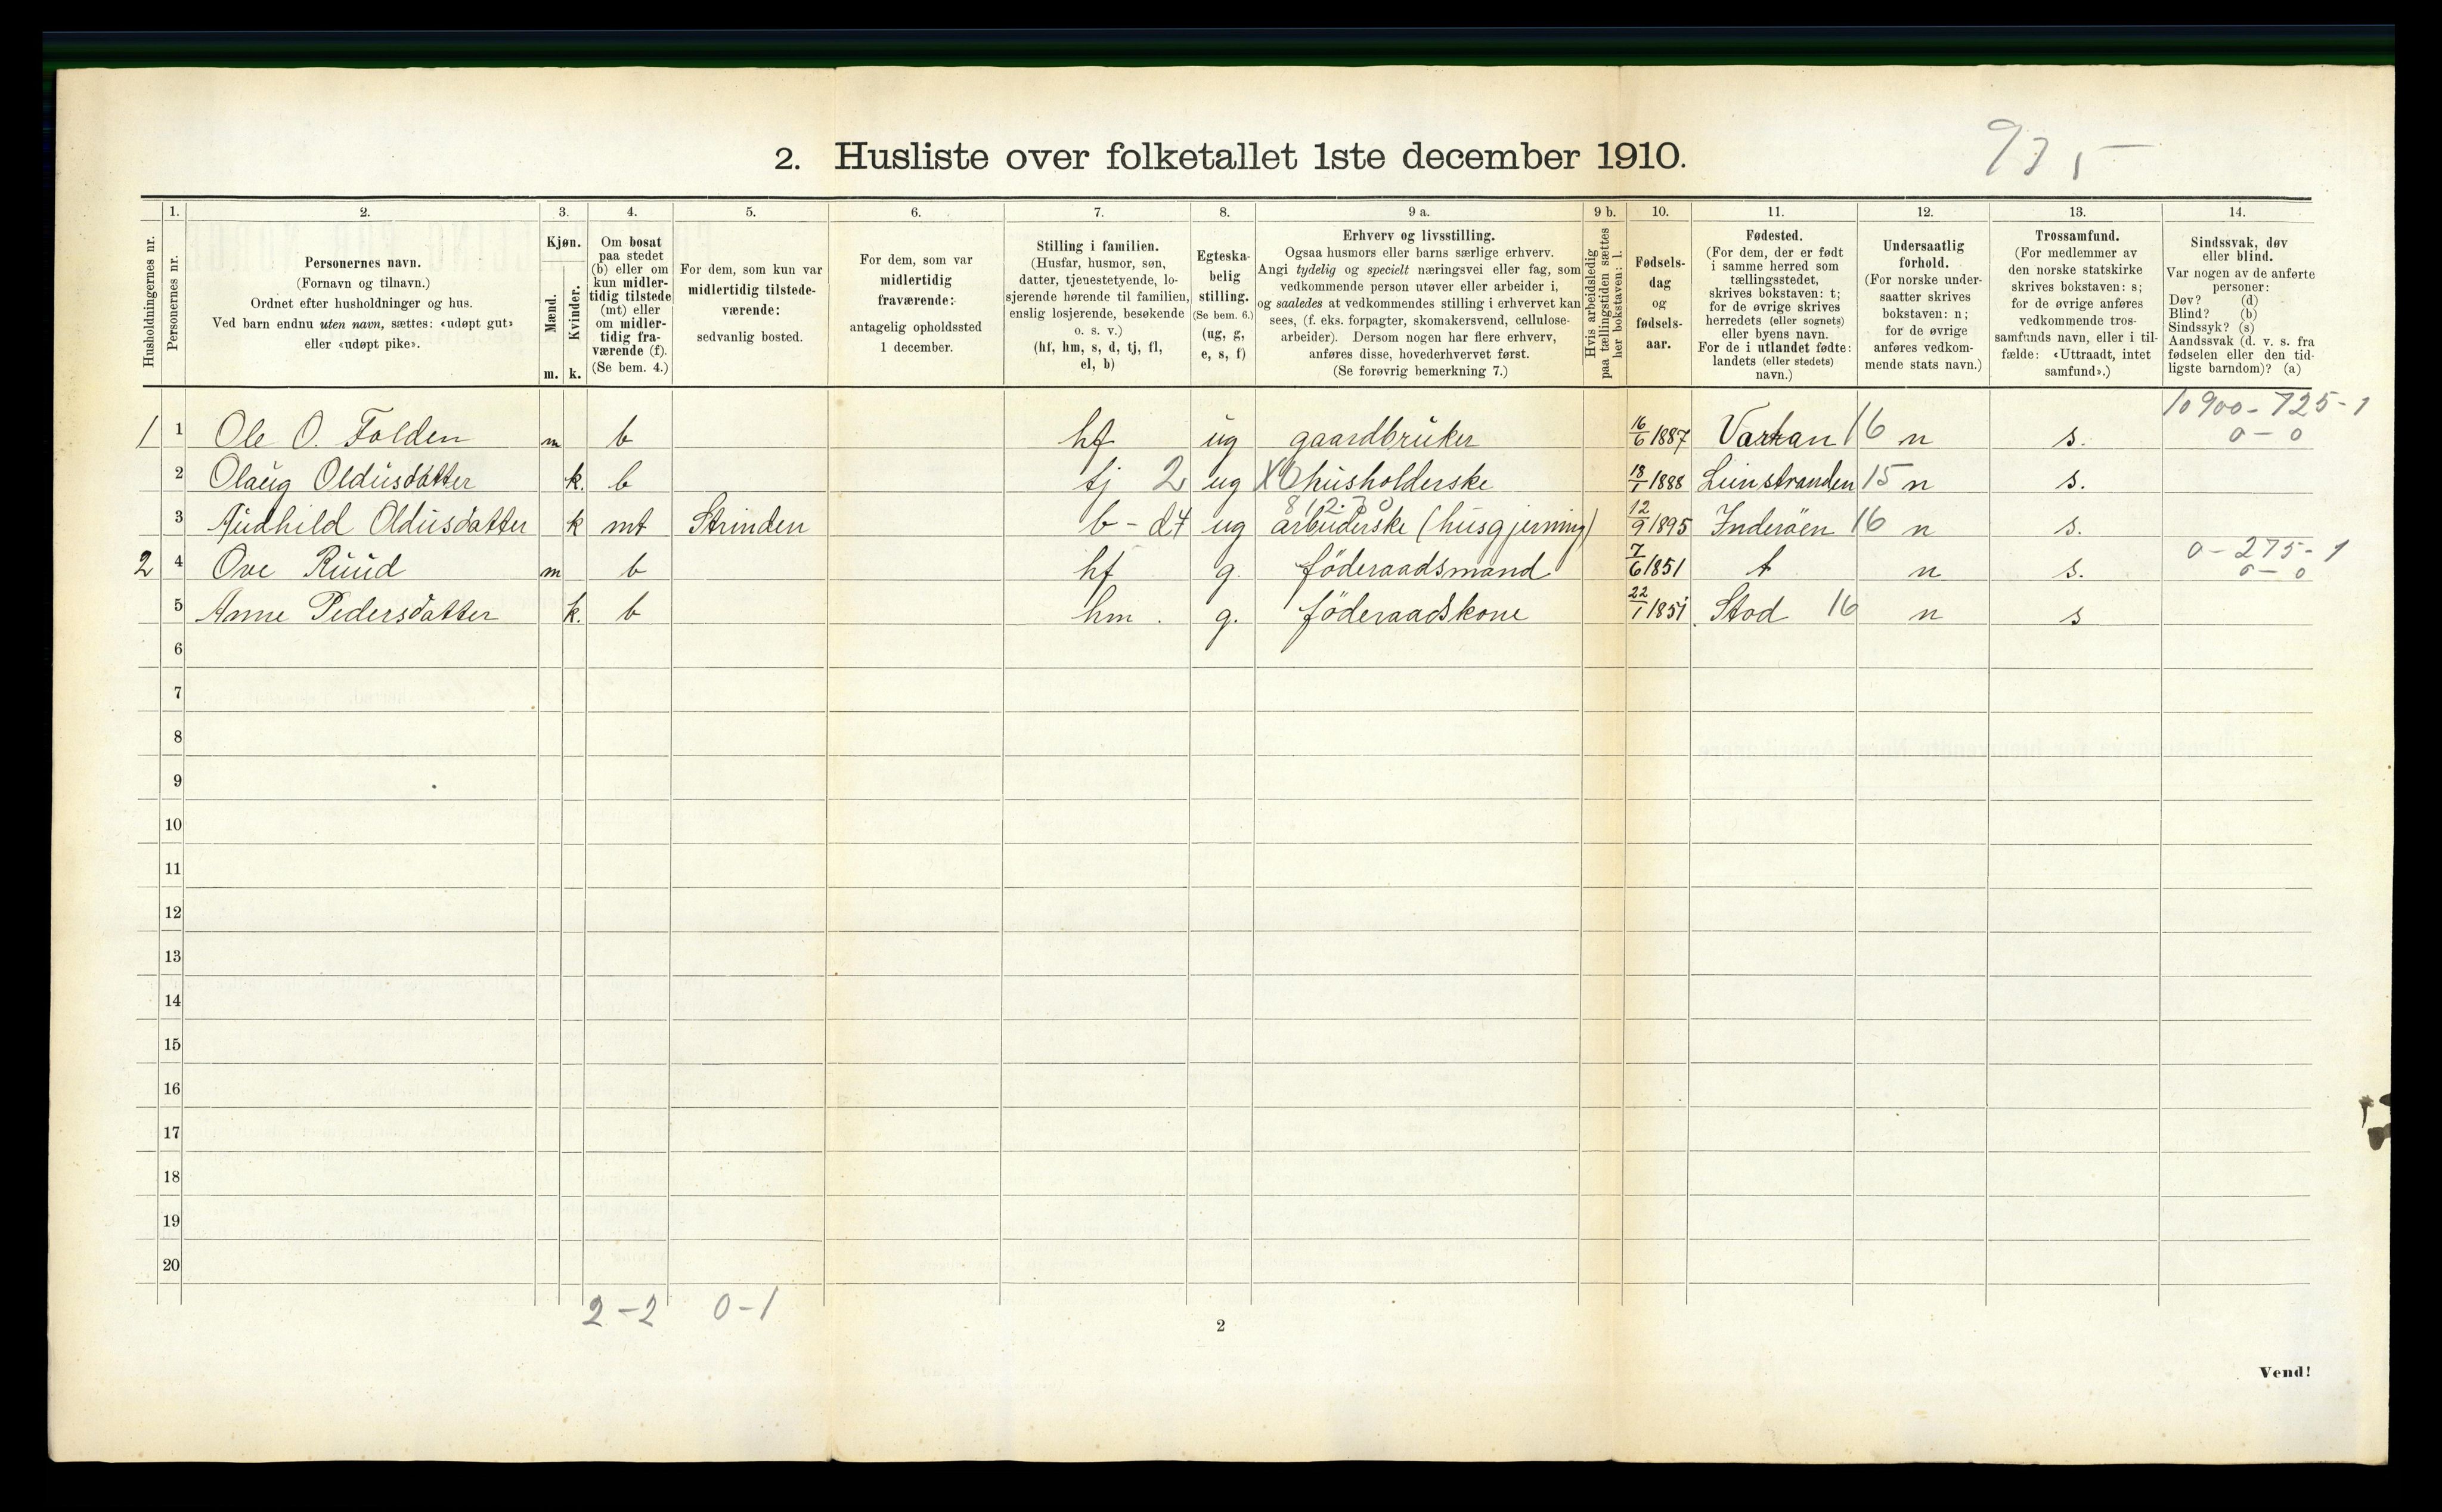 2. Husliste over folketallet 1ste december 1910.
1. 2. 3. 4. 5. 6. 7. 8. 9 a. 9 b. 10. 11. 12. 13. 14.
Husholdningernes nr.
Personernes nr.
Personernes navn.
(Fornavn og tilnavn.)
Ordnet efter husholdninger og hus.
Ved barn endnu uten navn, sættes: «udøpt gut»
eller «udøpt pike».
Kjøn.
Mænd.
Kvinder.
m. k.
Om bosat
paa stedet
(b) eller om
kun midler-
tidig tilstede
(mt) eller
om midler-
tidig fra-
værende (f).
(Se bem. 4.)
For dem, som kun var
midlertidig tilstede-
værende:
sedvanlig bosted.
For dem, som var
midlertidig
fraværende:
antagelig opholdssted
1 december.
Stilling i familien.
(Husfar, husmor, søn,
datter, tjenestetyende, lo-
sjerende hørende til familien,
enslig losjerende, besøkende
o. s. v.)
(hf, hm, s, d, tj, fl,
el, b)
Egteska-
belig
stilling.
(Se bem. 6.)
(ug, g,
e, s, f)
Erhverv og livsstilling.
Ogsaa husmors eller barns særlige erhverv.
Angi tydelig og specielt næringsvei eller fag, som
vedkommende person utøver eller arbeider i,
og saaledes at vedkommendes stilling i erhvervet kan
sees, (f. eks. forpagter, skomakersvend, cellulose-
arbeider). Dersom nogen har flere erhverv,
anføres disse, hovederhvervet først.
(Se forøvrig bemerkning 7.)
Hvis arbeidsledig
paa tællingstiden sættes
her bokstaven: l.
Fødsels-
dag
og
fødsels-
aar.
Fødested.
(For dem, der er født
i samme herred som
tællingsstedet,
skrives bokstaven: t;
for de øvrige skrives
herredets (eller sognets)
eller byens navn.
For de i utlandet fødte:
landets (eller stedets)
navn.)
Undersaatlig
forhold.
(For norske under-
saatter skrives
bokstaven: n;
for de øvrige
anføres vedkom-
mende stats navn.)
Trossamfund.
(For medlemmer av
den norske statskirke
skrives bokstaven: s;
for de øvrige anføres
vedkommende tros-
samfunds navn, eller i til-
fælde: «Uttraadt, intet
samfund».)
Sindssvak, døv
eller blind.
Var nogen av de anførte
personer:
Døv? (d)
Blind? (b)
Sindssyk? (s)
Aandssvak (d. v. s. fra
fødselen eller den tid-
ligste barndom)? (a)
10900 - 725 - 1
1 1 Ole O. Folden m b hf ug gaardbruker 16/6 1887 Vartan 16 n s. 0 - 0
2 Olaug Oldusdatter k. b tj 2 ug X0 husholderske 18/1 1888 Leinstranden 15 n s.
812.30
3 Audhild Oldusdatter k mt Strinden b - d4 ug arbeiderske (husgjerning) 12/9 1895 Inderöen 16 n s.
0 - 275 - 1
2 4 Ove Ruud m b hf g. föderaadsmand 7/6 1851 t n s. 0 - 0
5 Anne Pedersdatter k. b hm . g. föderaadskone 22/1 1851 Stod 16 n s
6
7
8
9
10
11
12
13
14
15
16
17
18
19
20
2 - 2 0 - 1
2
Vend!